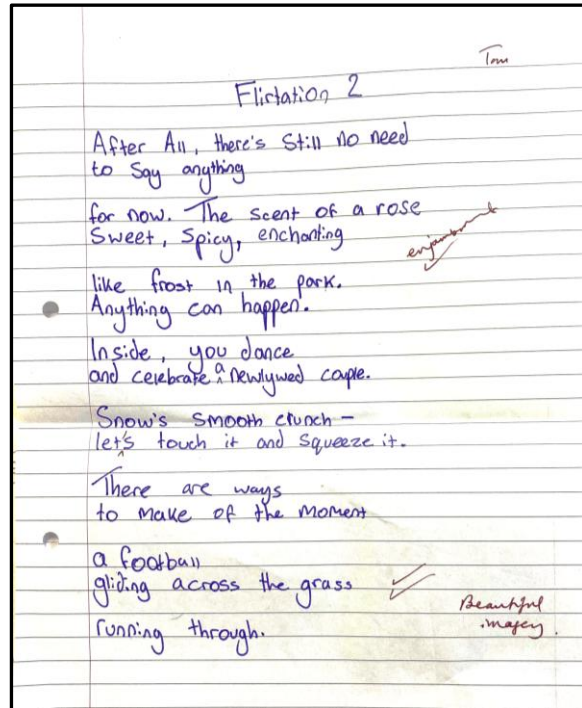 Tom
Flirtation 2
After All, there's Still no need
to Say anything
for now. The scent of a rose
Sweet, Spicy, enchanting
enjambment
like frost in the park.
Anything can happen.
Inside, you dance
and celebrate a newlywed couple.
Snow's smooth crunch –
let's touch it and squeeze it.
There are ways
to make of the moment
a football
gliding across the grass
Beautiful
imagery.
running through.